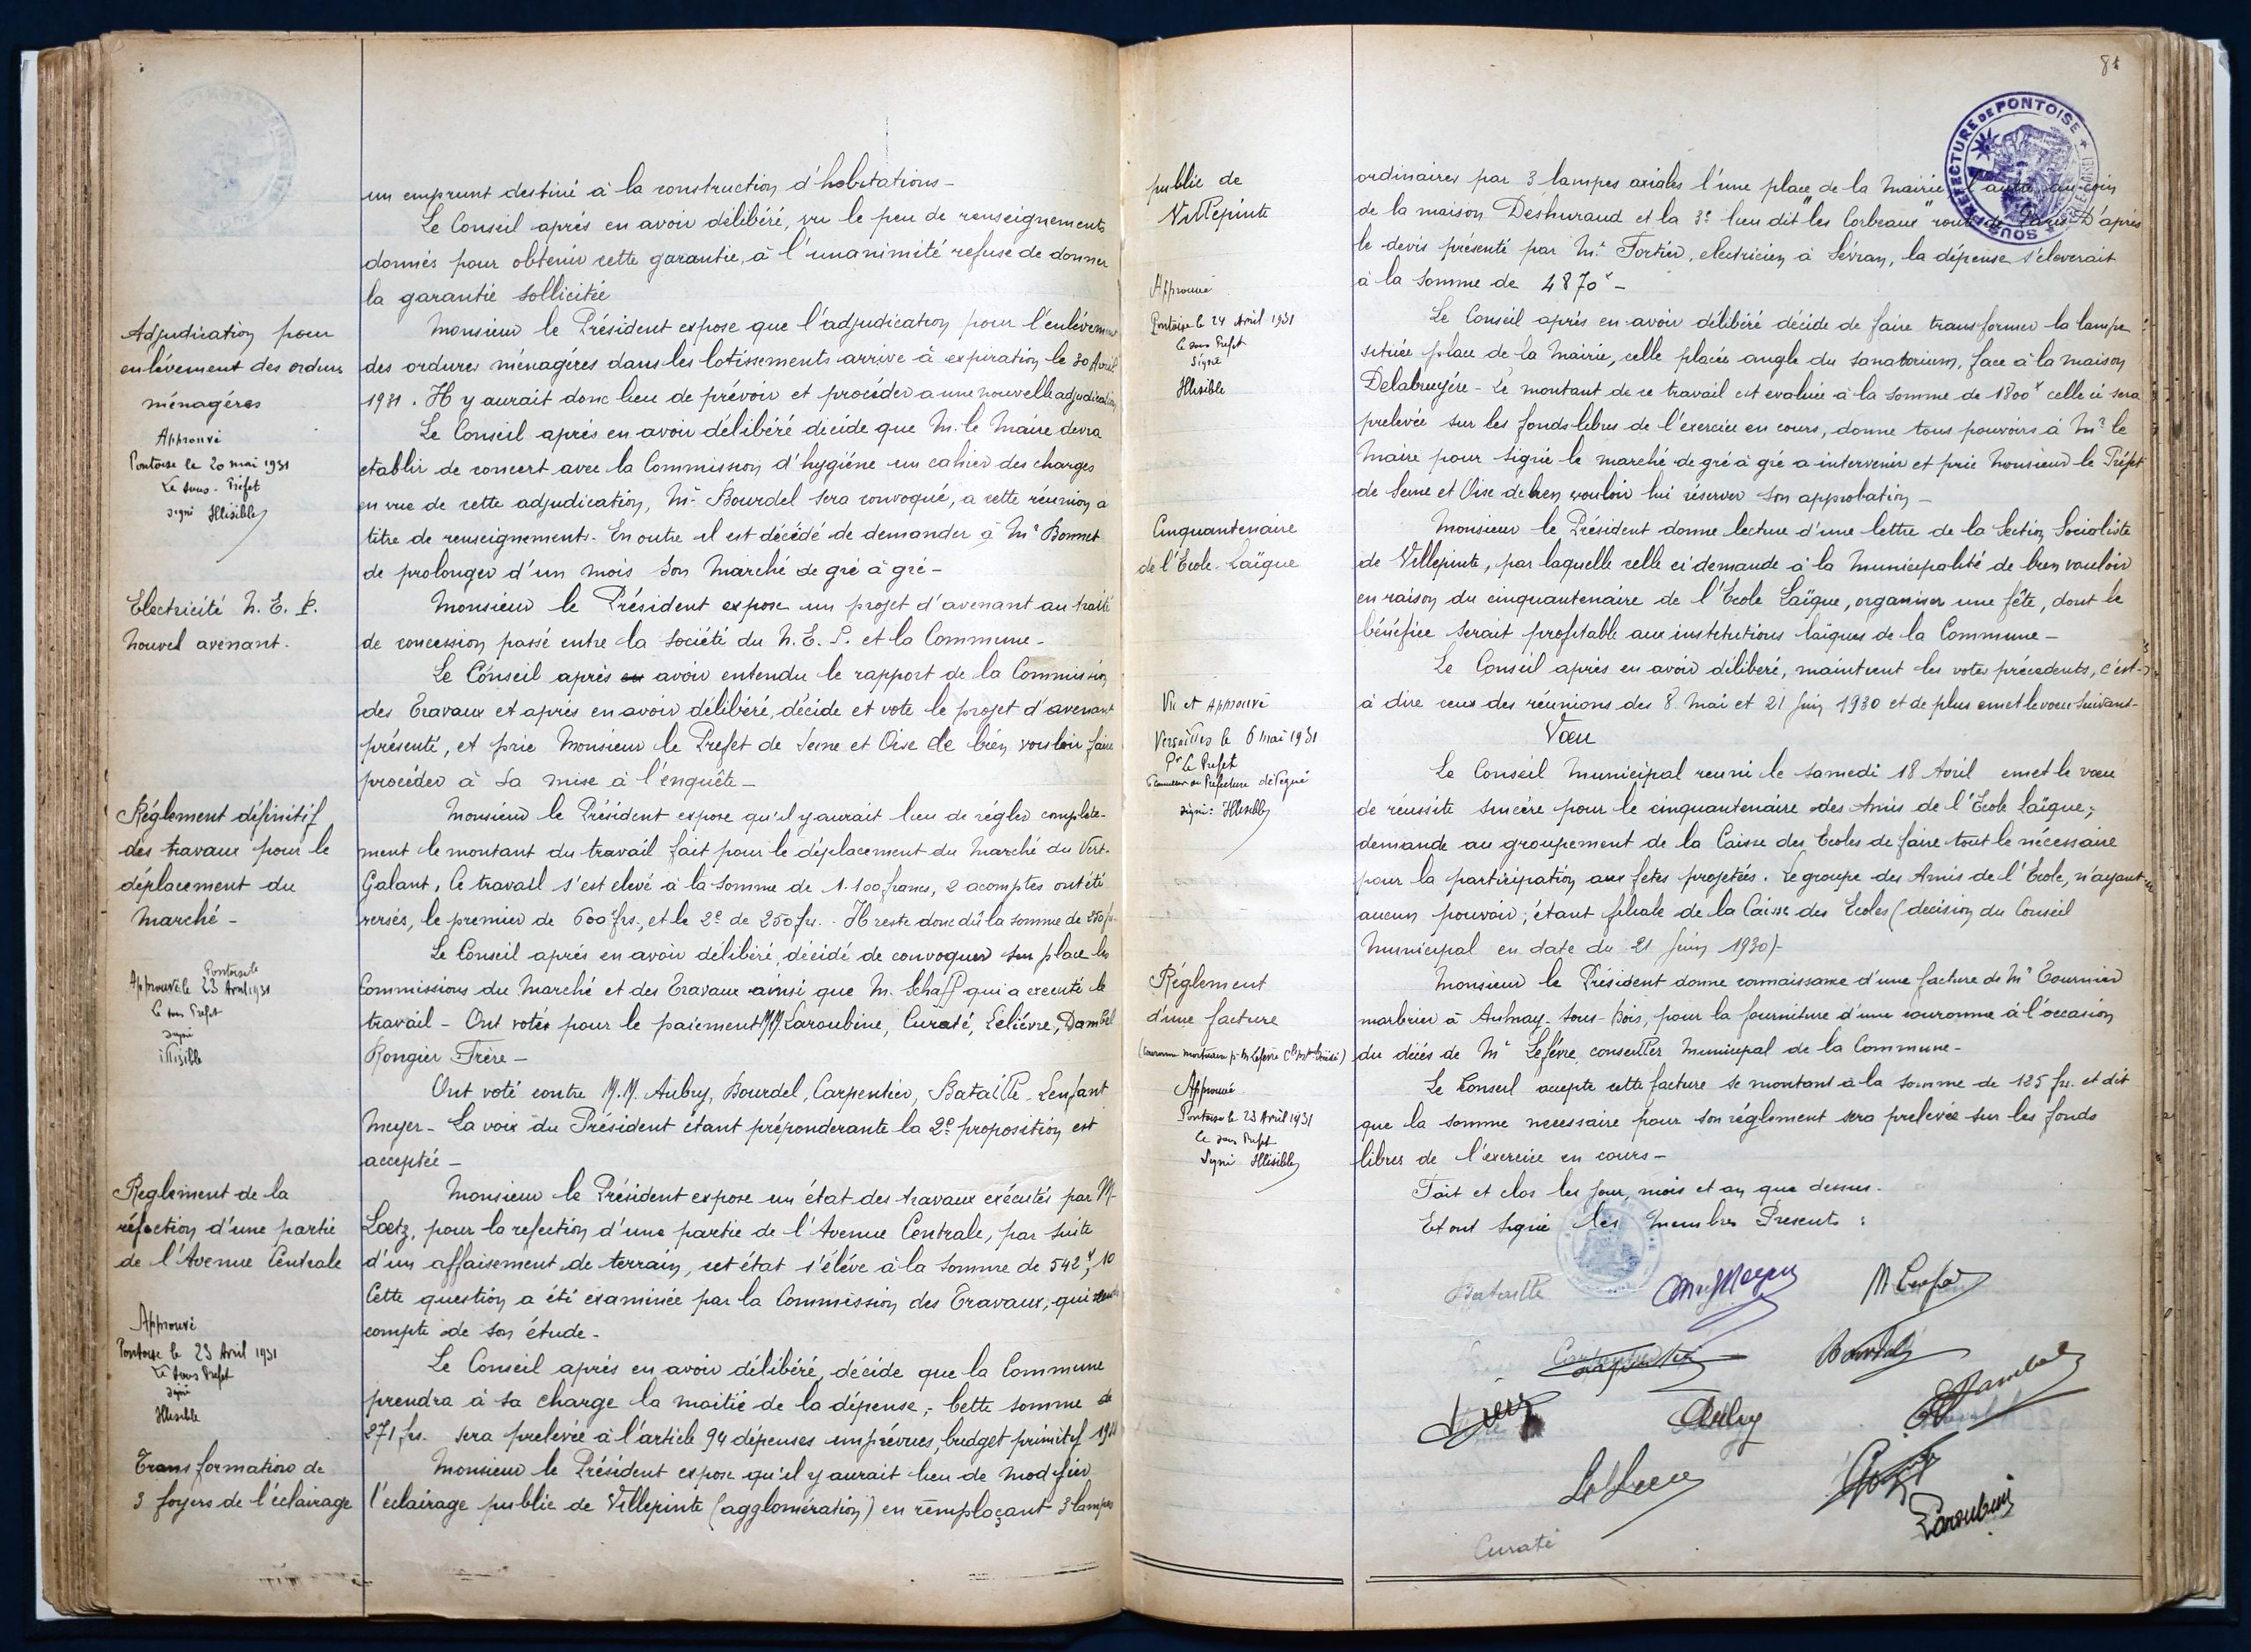 un emprunt destiné à la construction d'habitations –
Le Conseil après en avoir délibéré, vu le peu de renseignements
donnés pour obtenir cette garantie, à l'unanimité refuse de donner
la garantie sollicitée
Adjudication pour
enlèvement des ordures
ménagères
Approuvé
Pontoise le 20 mai 1931
Le sous-Préfet
signé Illisible
Monsieur le Président expose que l'adjudication pour l'enlèvement
des ordures ménagères dans les lotissements arrive à expiration le 30 Avril
1931. Il y aurait donc lieu de prévoir et procéder a une nouvelle adjudication
Le Conseil après en avoir délibéré décide que M. le Maire devra
etablir de concert avec la Commission d'hygiéne un cahier des charges
en vue de cette adjudication, Mr Bourdel sera convoqué, a cette réunion a
titre de renseignements. En outre il est décédé de demander à Mr Bonnet
de prolonger d'un mois son Marché de gré à gré –
Electricité N. E. P.
Nouvel avenant.
Monsieur le Président expose un projet d'avenant au traité
de concession passé entre la Société du N. E. P. et la Commune –
Le Conseil après en avoir entendu le rapport de la Commission
des Travaux et après en avoir délibéré, décide et vote le projet d'avenant
présenté, et prie Monsieur le Prefet de Seine et Oise de bien vouloir faire
procéder à sa mise à l'enquête –
Réglement définitif
des travaux pour le
déplacement du
Marché –
Pontoise le
Approuvé le 23 Avril 1931
Le sous Préfet
signé
illisible
Monsieur le Président expose qu'il y aurait lieu de régler complète-
ment le montant du travail fait pour le déplacement du Marché du Vert-
Galant. Ce travail s'est elevé à la somme de 1.100 francs, 2 acomptes ont été
versés, le premier de 600 frs., et le 2e de 250 frs. – Il reste donc dû la somme de 250 frs
Le Conseil après en avoir délibéré, décidé de convoquer sur place les
Commissions du Marché et des Travaux ainsi que M. Schaff qui a executé le
travail – Ont votés pour le paiement MM. Laroubine, Curaté, Lelièvre, Dambel
Rongier Frère –
Ont voté contre M.M. Aubry, Bourdel, Carpentier, Bataille. Lenfant
Meyer – La voix du Président étant prépondérante la 2e proposition est
acceptée –
Reglement de la
réfection d'une partie
de l'Avenue Centrale
Approuvé
Pontoise le 23 Avril 1931
Le Sous Préfet
signé
Illisible
Monsieur le Président expose un état des travaux exécutés par M.
Loetz, pour la refection d'une partie de l'Avenue Centrale, par suite
d'un affaisement de terrain, cet état s'élève à la somme de 542f,10
Cette question a été examinée par la Commission des Travaux, qui rend
compte de son étude –
Le Conseil après en avoir délibéré, décide que la Commune
prendra à sa charge la moitié de la dépense, – Cette somme de
271 frs. sera prelevée à l'article 94 dépenses imprévues, budget primitif 1931
Transformation de
3 foyers de l'éclairage
Monsieur le Président expose qu'il y aurait lieu de modifier
l'eclairage public de Villepinte (agglomération) en remplaçant 3 lampes
SOUS-PRÉFECTURE DE PONTOISE
public de
Villepinte
Approuvé
Pontoise le 24 Avril 1931
le sous Préfet
Signé
Illisible
ordinaires par 3 lampes axiales l'une place de la Mairie, l'autre au coin
de la maison Deshuraud et la 3e lieu dit "les Corbeaux" route de Paris D'après
le devis présenté par Mr Fortier, electricien à Sévran, la dépense s'éleverait
à la somme de 4870f –
Le Conseil après en avoir délibéré décide de faire transformer la lampe
située place de la Mairie, celle placée angle du sanatorium, face à la maison
Delabruyére – Le montant de ce travail est evaluée à la somme de 1800f celle ci sera
prelevée sur les fonds libres de l'éxercice en cours, donne tous pouvoirs à Mr le
Maire pour signé le marché de gré à gré a intervenir et prie Monsieur le Préfet
de Seine et Oise de bien vouloir lui réserver son approbation –
Cinquantenaire
de l'Ecole Laïque
Vu et Approuvé
Versailles le 6 mai 1931
Pr Le Prefet
Conseiller de Prefecture délégué
signé: Illisible
Monsieur le Président donne lecture d'une lettre de la Section Socioliste
de Villepinte, par laquelle celle ci demande à la Municipalité de bien vouloir
en raison du cinquantenaire de l'Ecole Laïque, organiser une fête, dont le
bénéfice serait profitable aux institutions laïques de la Commune –
Le Conseil après en avoir délibéré, maintient les votes précedents, c'est-
à dire ceux des réunions des 8 Mai et 21 Juin 1930 et de plus emet le voeu suivant –
Voeu
Le Conseil Municipal reuni le samedi 18 Avril emet le voeu
de réussite sincère pour le cinquantenaire des Amis de l'Ecole laïque;
demande au groupement de la Caisse des Ecoles de faire tout le nécessaire
pour la participation aux fetes projetées. Le groupe des Amis de l'Ecole, n'ayant
aucun pouvoir; étant filiale de la Caisse des Ecoles (décision du Conseil
Municipal en date du 21 Juin 1930) –
Réglement
d'une facture
Approuvé
Pontoise le 23 Avril 1931
le sous Préfet
Signé Illisible
Monsieur le Président donne connaissance d'une facture de Mr Tournier
marbrier à Aulnay-Sous-Bois, pour la fourniture d'une couronne à l'occasion
du décés de Mr Lefévre, conseiller Municipal de la Commune –
Le Conseil accepte cette facture se montant à la somme de 125 frs. et dit
que la somme necessaire pour son réglement sera prelevée sur les fonds
libres de l'exercice en cours –
Fait et clos les jour, mois et an que dessus.
Et ont signé les Membres Présents :
Bataille
Carpentier
Bourdel
Dambel
Aubry
Laroubine
Curaté